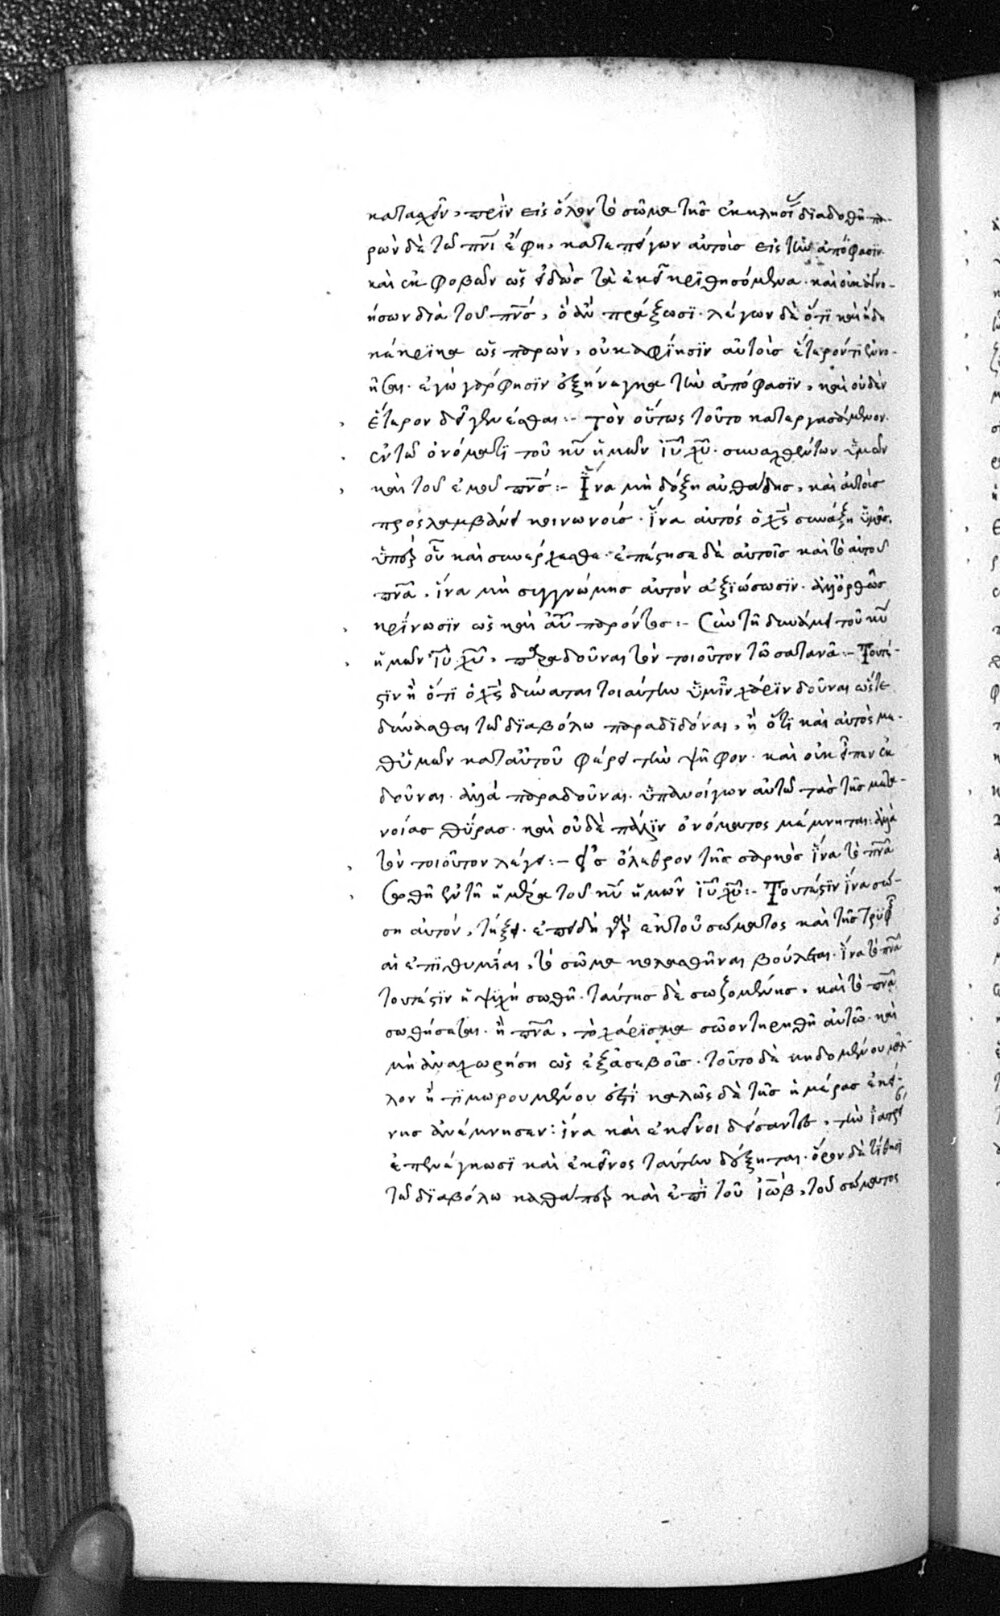 κατασχεῖν, πρὶν εἰς ὅλον τὸ σῶμα τῆς ἐκκλησί διαδοθῆ πα-
ρὼν δὲ τῶ πνι ἔφη, κατεπείγων αὐτοὺς εἰς τὴν ἀπόφασιν
καὶ ἐκφοβῶν ὡς εἰδὼς τὰ ἐκεῖ κριθησόμενα· καὶ οὐκ ἀγνο-
ήσων διὰ τοῦ πνς, ὃ ἂν πράξωσι· λέγων δὲ ὅτι καὶ ἤδη
κέκρικα ὡς παρὼν, οὐκ ἀφίησιν αὐτοὺς ἕτερόν τι ἐννο-
ῆσαι· ἐγὼ γάρ φησιν ἐξήνεγκα τὴν ἀπόφασιν, καὶ οὐδὲν
ἕτερον δεῖ γενέσθαι:- τὸν οὕτως τοῦτο κατεργασάμενον
ἐν τῶ ὀνόματι τοῦ κυ ἡμῶν ιυ χυ· συναχθέντων ὑμῶν
καὶ τοῦ ἐμοῦ πνς:- Ἵνα μὴ δόξη αὐθάδης, καὶ αὐτοὺς
προσλαμβάνει κοινωνούς· ἵνα αὐτὸς ὁ χς συνάξη ὑμᾶς,
ὑπὲρ οὗ καὶ συνέρχεσθε· ἐπέστησε δὲ αὐτοῖς καὶ τὸ αὐτοῦ
πνα, ἵνα μὴ συγγνώμης αὐτὸν ἀξιώσωσιν· ἀλλ' ὀρθῶς
κρίνωσιν ὡς καὶ αὐτοῦ παρόντος:- Σὺν τῆ δυνάμει τοῦ κυ
ἡμῶν ιυ χυ, παραδοῦναι τὸν τοιοῦτον τῶ σατανᾶ:- Τουτέ-
στιν ἢ ὅτι ὁ χς δύναται τοιαύτην ὑμῖν χάριν δοῦναι ὥστε
δύνασθαι τῶ διαβόλω παραδιδόναι, ἢ ὅτι καὶ αὐτὸς με-
θ' ὑμῶν κατ' αὐτοῦ φέρει τὴν ψῆφον· καὶ οὐκ εἶπεν ἐκ
δοῦναι· ἀλλὰ παραδοῦναι· ὑπανοίγων αὐτῶ τὰς τῆς μετα-
νοίας θύρας· καὶ οὐδὲ πάλιν ὀνόματος μέμνηται· ἀλλὰ
τὸν τοιοῦτον λέγει:- εἰς ὄλεθρον τῆς σαρκὸς ἵνα τὸ πνα
σωθῆ ἐν τῆ ἡμέρα τοῦ κυ ἡμῶν ιυ χυ:- Τουτέστιν ἵνα σώ-
ση αὐτόν, τήξει· ἐπειδὴ γὰρ ἐκ τοῦ σώματος καὶ τῆς τρυφῆ
αἱ ἐπιθυμίαι, τὸ σῶμα κολασθῆναι βούλεται· ἵνα τὸ πνα
τουτέστιν ἡ ψυχὴ σωθῆ· ταύτης δὲ σωζομένης, καὶ τὸ πνα
σωθήσεται· ἢ πνα, τὸ χάρισμα σῶον τηρηθῆ αὐτῶ· καὶ
μὴ ἀναχωρήση ὡς ἐξ ἀσεβοῦς· τοῦτο δὲ κηδομένου μᾶλ-
λον ἢ τιμωρουμένου ἐστί· καλῶς δὲ τῆς ἡμέρας ἐκεί-
νης ἀνέμνησεν· ἵνα καὶ ἐκεῖνοι δείσαντες, τὴν ἰατρεί
ἐπενέγκωσι καὶ ἐκεῖνος ταύτην δέξηται· ὅρον δὲ τίθησι
τῶ διαβόλω καθάπερ καὶ ἐπὶ τοῦ ἰωβ, τοῦ σώματος